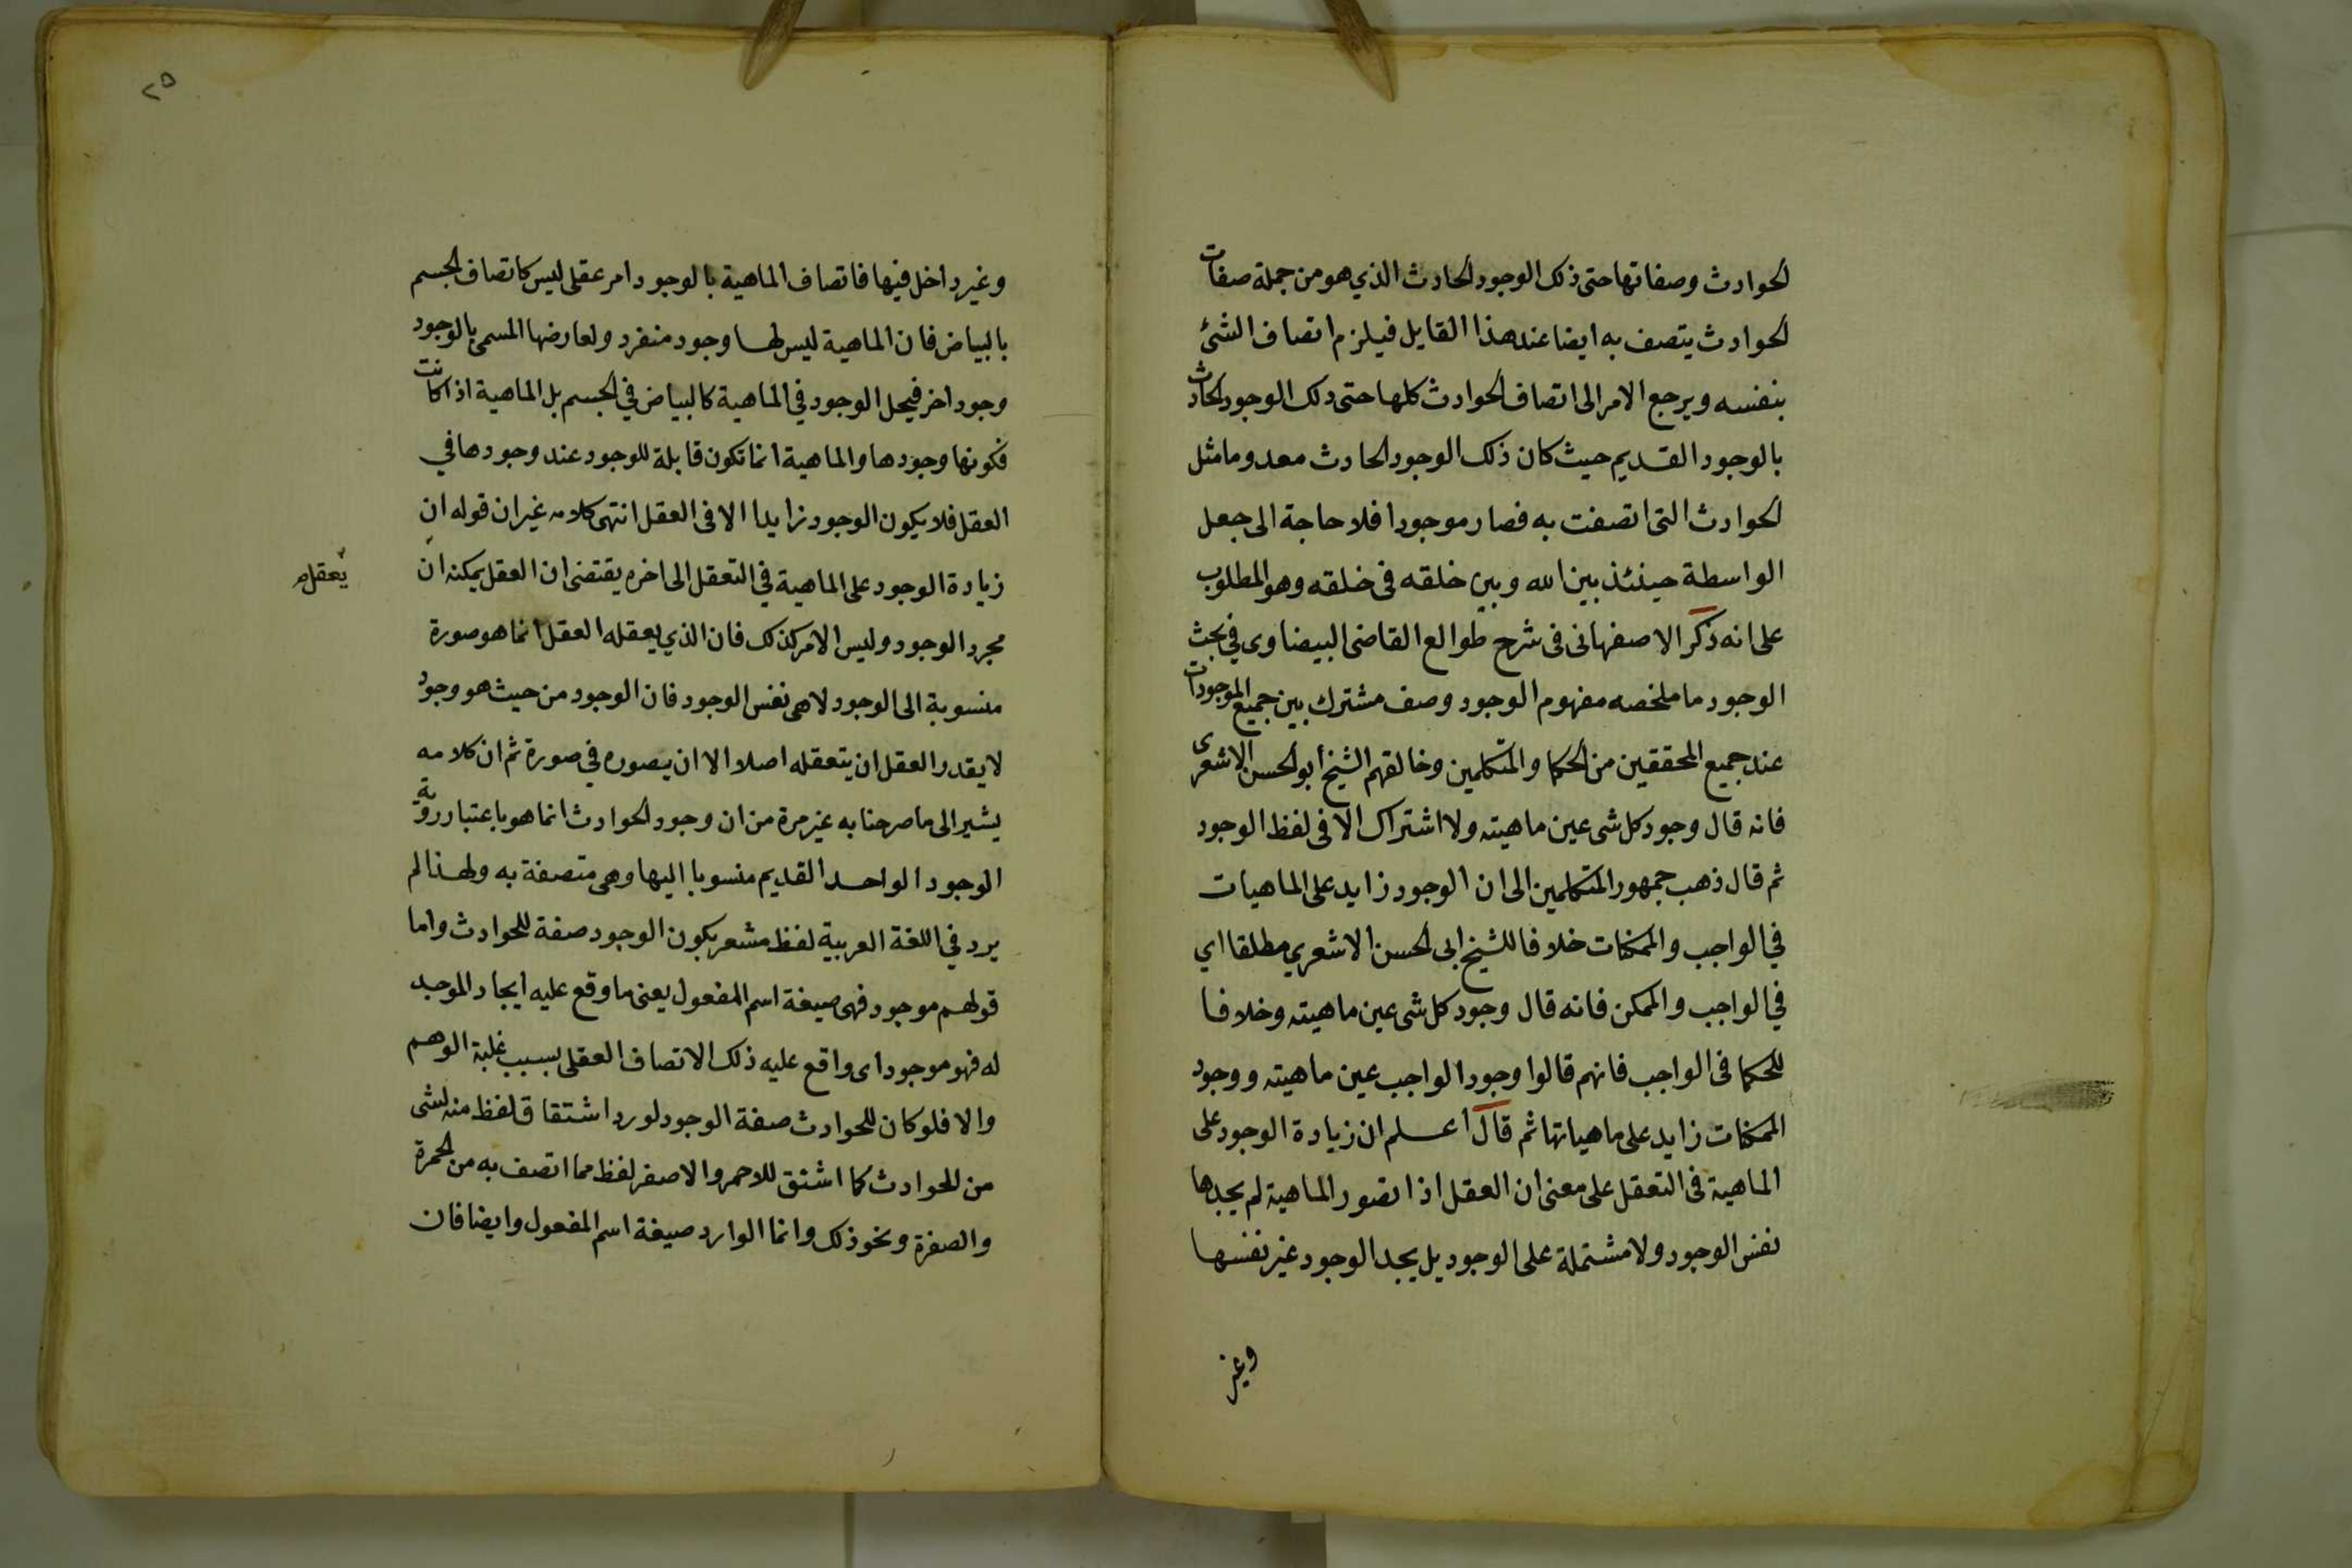 الحوادث وصفاتها حتى ذلك الوجود الحادث الذي هو من جملة صفات
الحوادث يتصف به ايضا عند هذا القايل فيلزم اتصاف الشئ
بنفسه ويرجع الامر الى اتصاف الحوادث كلها حتى ذلك الوجود الحادث
بالوجود القديم حيث كان ذلك الوجود الحادث معدوما مثل
الحوادث التى اتصفت به فصار موجودا فلا حاجة الى جعل
الواسطة حينئذ بين الله وبين خلقه فى خلقه وهو المطلوب
على انه ذكر الاصفهانى فى شرح طوالع القاضى البيضاوى في بحث
الوجود ما ملخصه مفهوم الوجود وصف مشترك بين جميع الموجودات
عند جميع المحققين من الحكما والمتكلمين وخالفهم الشيخ أبو الحسن الاشعرى
فانه قال وجود كل شى عين ماهيته ولا اشتراك الا فى لفظ الوجود
ثم قال ذهب جمهور المتكلمين الى ان الوجود زايد على الماهيات
في الواجب والممكنات خلافا للشيخ ابى الحسن الاشعري مطلقا اي
في الواجب والممكن فانه قال وجود كل شى عين ماهيته وخلافا
للحكما فى الواجب فانهم قالوا وجود الواجب عين ماهيته ووجود
الممكنات زايد على ماهياتها ثم قال اعلم ان زيادة الوجود على
الماهية فى التعقل على معنى ان العقل اذا تصور الماهية لم يجدها
نفس الوجود ولا مشتملة على الوجود بل يجد الوجود غير نفسها
وغير
٢٥
وغير داخل فيها فاتصاف الماهية بالوجود امر عقلى ليس كاتصاف الجسم
بالبياض فان الماهية ليس لها وجود منفرد ولعارضها المسمى بالوجود
وجود اخر فيحل الوجود في الماهية كالبياض في الجسم بل الماهية اذا كانت
فكونها وجودها والماهية انما تكون قابلة للوجود عند وجودها في
العقل فلا يكون الوجود زايدا الا فى العقل انتهى كلامه غير ان قوله ان
زيادة الوجود على الماهية في التعقل الى اخره يقتضى ان العقل يمكنه ان
يعقل
مجرد الوجود وليس الامر كذلك فان الذي يعقله العقل انما هو صورة
منسوبة الى الوجود لا هى نفس الوجود فان الوجود من حيث هو وجود
لا يقدر العقل ان يتعقله اصلا الا ان يصوره في صورة ثم ان كلامه
يشير الى ما صرحنا به غير مرة من ان وجود الحوادث انما هو باعتبار روية
الوجود الواحد القديم منسوبا اليها وهى متصفة به ولهذا لم
يرد في اللغة العربية لفظ مشعر بكون الوجود صفة للحوادث واما
قولهم موجود فهى صيغة اسم المفعول يعنى ما وقع عليه ايجاد الموجد
له فهو موجود اى واقع عليه ذلك الاتصاف العقلى بسبب غلبة الوهم
والا فلو كان للحوادث صفة الوجود لورد اشتقاق لفظ منه لشى
من الحوادث كما اشتق للاحمر والاصفر لفظ مما اتصف به من الحمرة
والصفرة ونحو ذلك وانما الوارد صيغة اسم المفعول وايضا فان